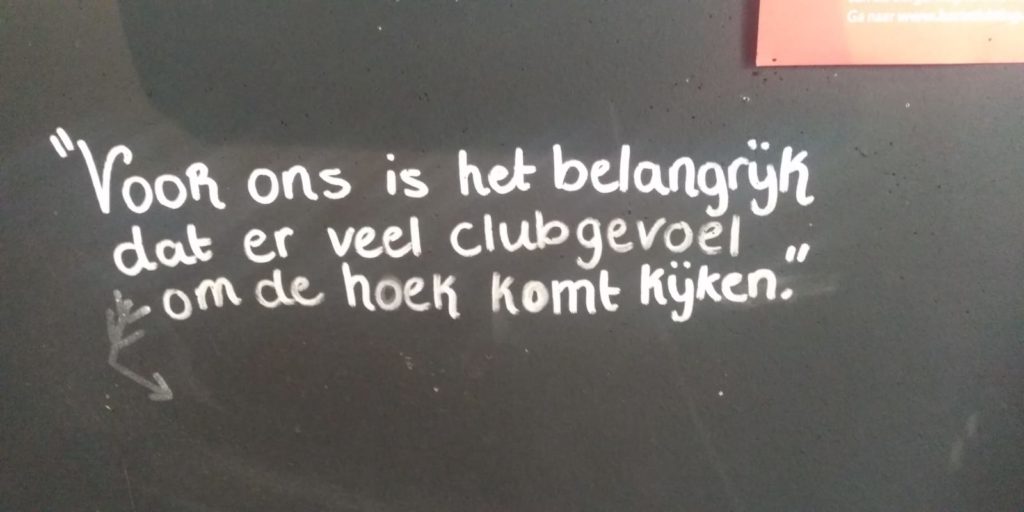 Ga naar
"Voor ons is het belangrijk
dat er veel clubgevoel
om de hoek komt kijken."